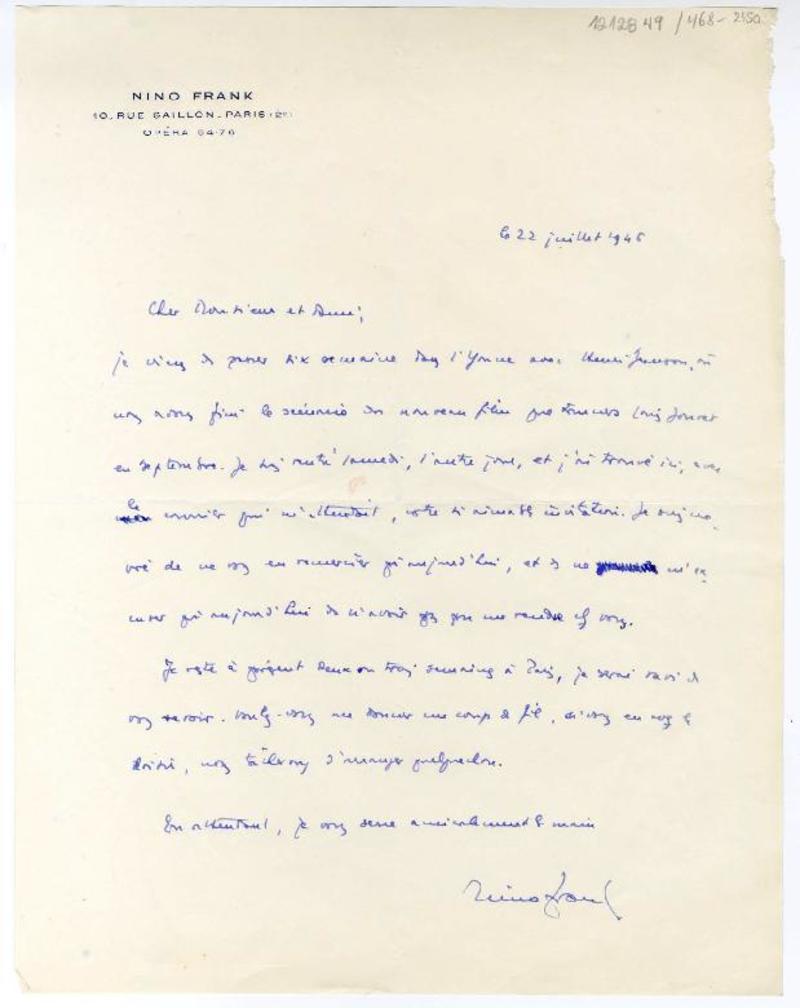 1212B49 / 468-215a
NINO FRANK
10, RUE GAILLON - PARIS (2e)
OPÉRA 64-76
le 22 juillet 1946
Cher Monsieur et Ami,
je viens de passer six semaines dans l'Yonne avec Henri Jeanson, où
nous avons fini le scénario du nouveau film que tournera Louis Jouvet
en septembre. Je suis rentré samedi, l'autre jour, et j'ai trouvé ici, avec
le courrier qui m'attendait, votre si aimable invitation. Je suis na-
vré de ne vous en remercier qu'aujourd'hui, et de ne m'ex-
cuser qu'aujourd'hui de n'avoir pas pu me rendre chez vous.
Je reste à présent deux ou trois semaines à Paris, je serai ravi de
vous revoir. Voulez-vous me donner un coup de fil, si vous en avez le
loisir, nous tâcherons d'arranger quelque chose.
En attendant, je vous serre amicalement la main
Nino Frank